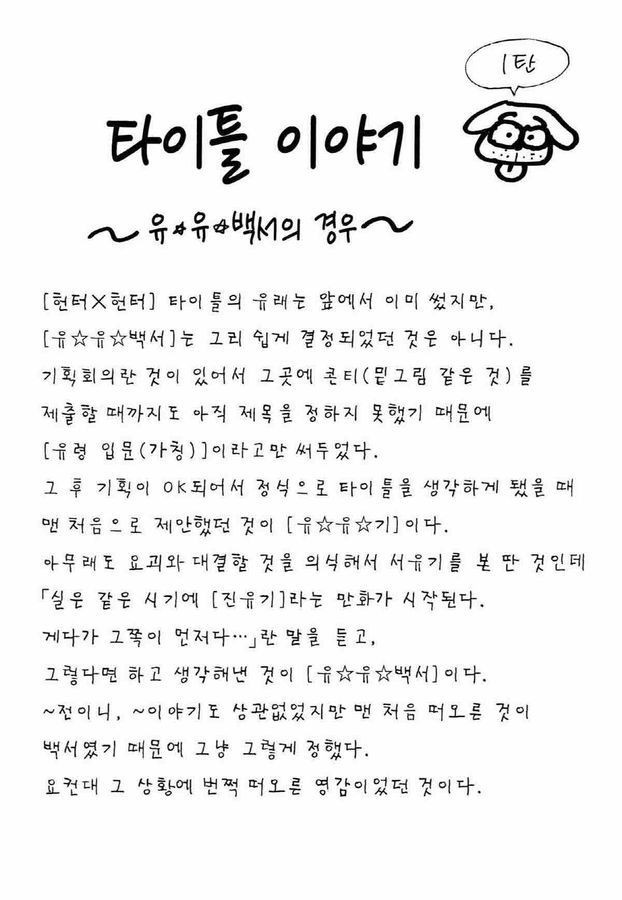 1탄
타이틀 이야기
~유☆유☆백서의 경우~
[헌터×헌터] 타이틀의 유래는 앞에서 이미 썼지만,
[유☆유☆백서]는 그리 쉽게 결정되었던 것은 아니다.
기획회의란 것이 있어서 그곳에 콘티(밑그림 같은 것)를
제출할 때까지도 아직 제목을 정하지 못했기 때문에
[유령 입문(가칭)]이라고만 써두었다.
그 후 기획이 OK되어서 정식으로 타이틀을 생각하게 됐을 때
맨 처음으로 제안했던 것이 [유☆유☆기]이다.
아무래도 요괴와 대결할 것을 의식해서 서유기를 본 딴 것인데
「실은 같은 시기에 [진유기]라는 만화가 시작된다.
게다가 그쪽이 먼저다…」란 말을 듣고,
그렇다면 하고 생각해낸 것이 [유☆유☆백서]이다.
~전이니, ~이야기도 상관없었지만 맨 처음 떠오른 것이
백서였기 때문에 그냥 그렇게 정했다.
요컨대 그 상황에 번쩍 떠오른 영감이었던 것이다.